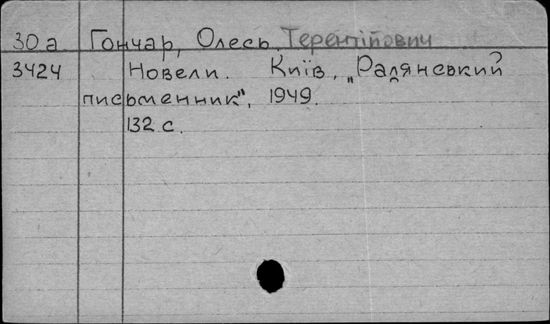 30а Гончар, Олесь Терентійович
3424 Новели. Київ, "Радянський
письменник", 1949.
132 с.